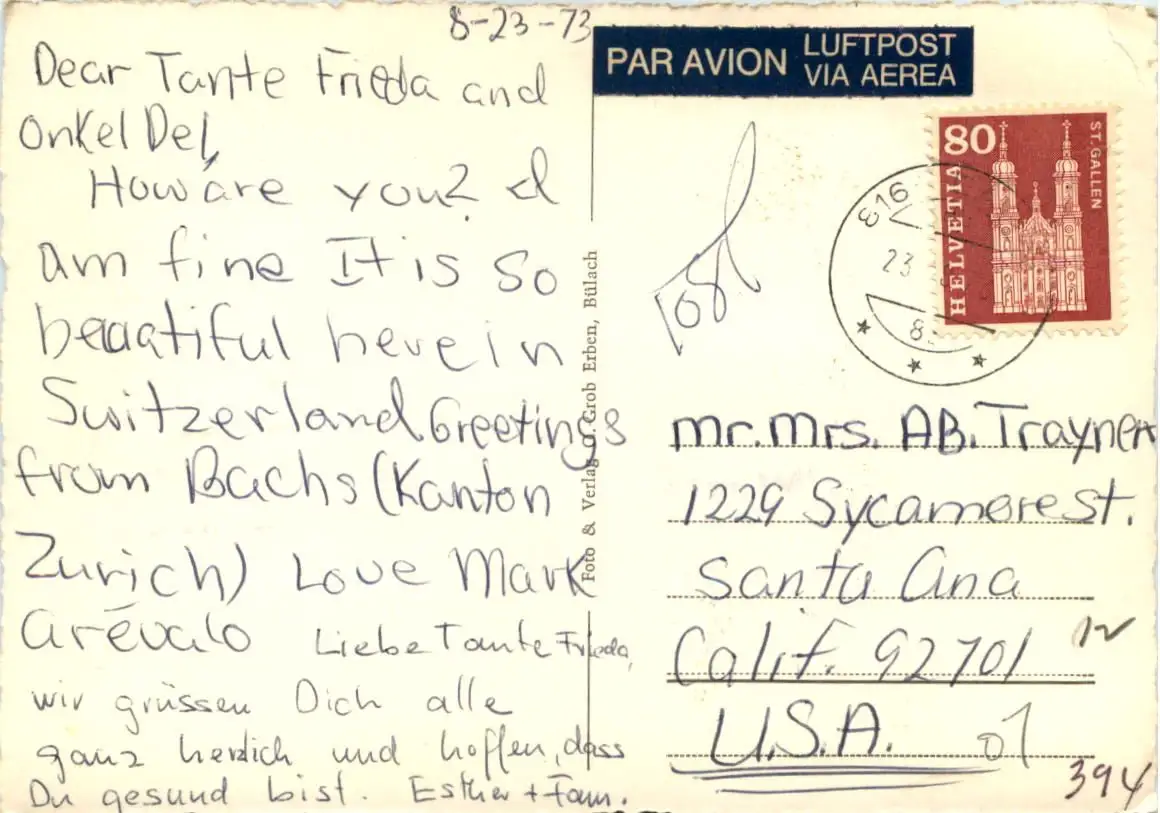 8-23-73
Dear Tante Frieda and
Onkel Del,
How are you? I
am fine It is so
beautiful here in
Switzerland. Greetings
from Bachs (Kanton
Zurich) Love Mark
Arévalo
Liebe Tante Frieda,
wir grüssen Dich alle
ganz herzlich und hoffen, dass
Du gesund bist. Esther + Fam.
Foto & Verlag Grob Erben, Bülach
PAR AVION
LUFTPOST
VIA AEREA
80
HELVETIA
ST. GALLEN
816
23
8.
Mr. Mrs. AB. Trayner
1229 Sycamore st.
Santa Ana
Calif. 92701
U.S.A.
394